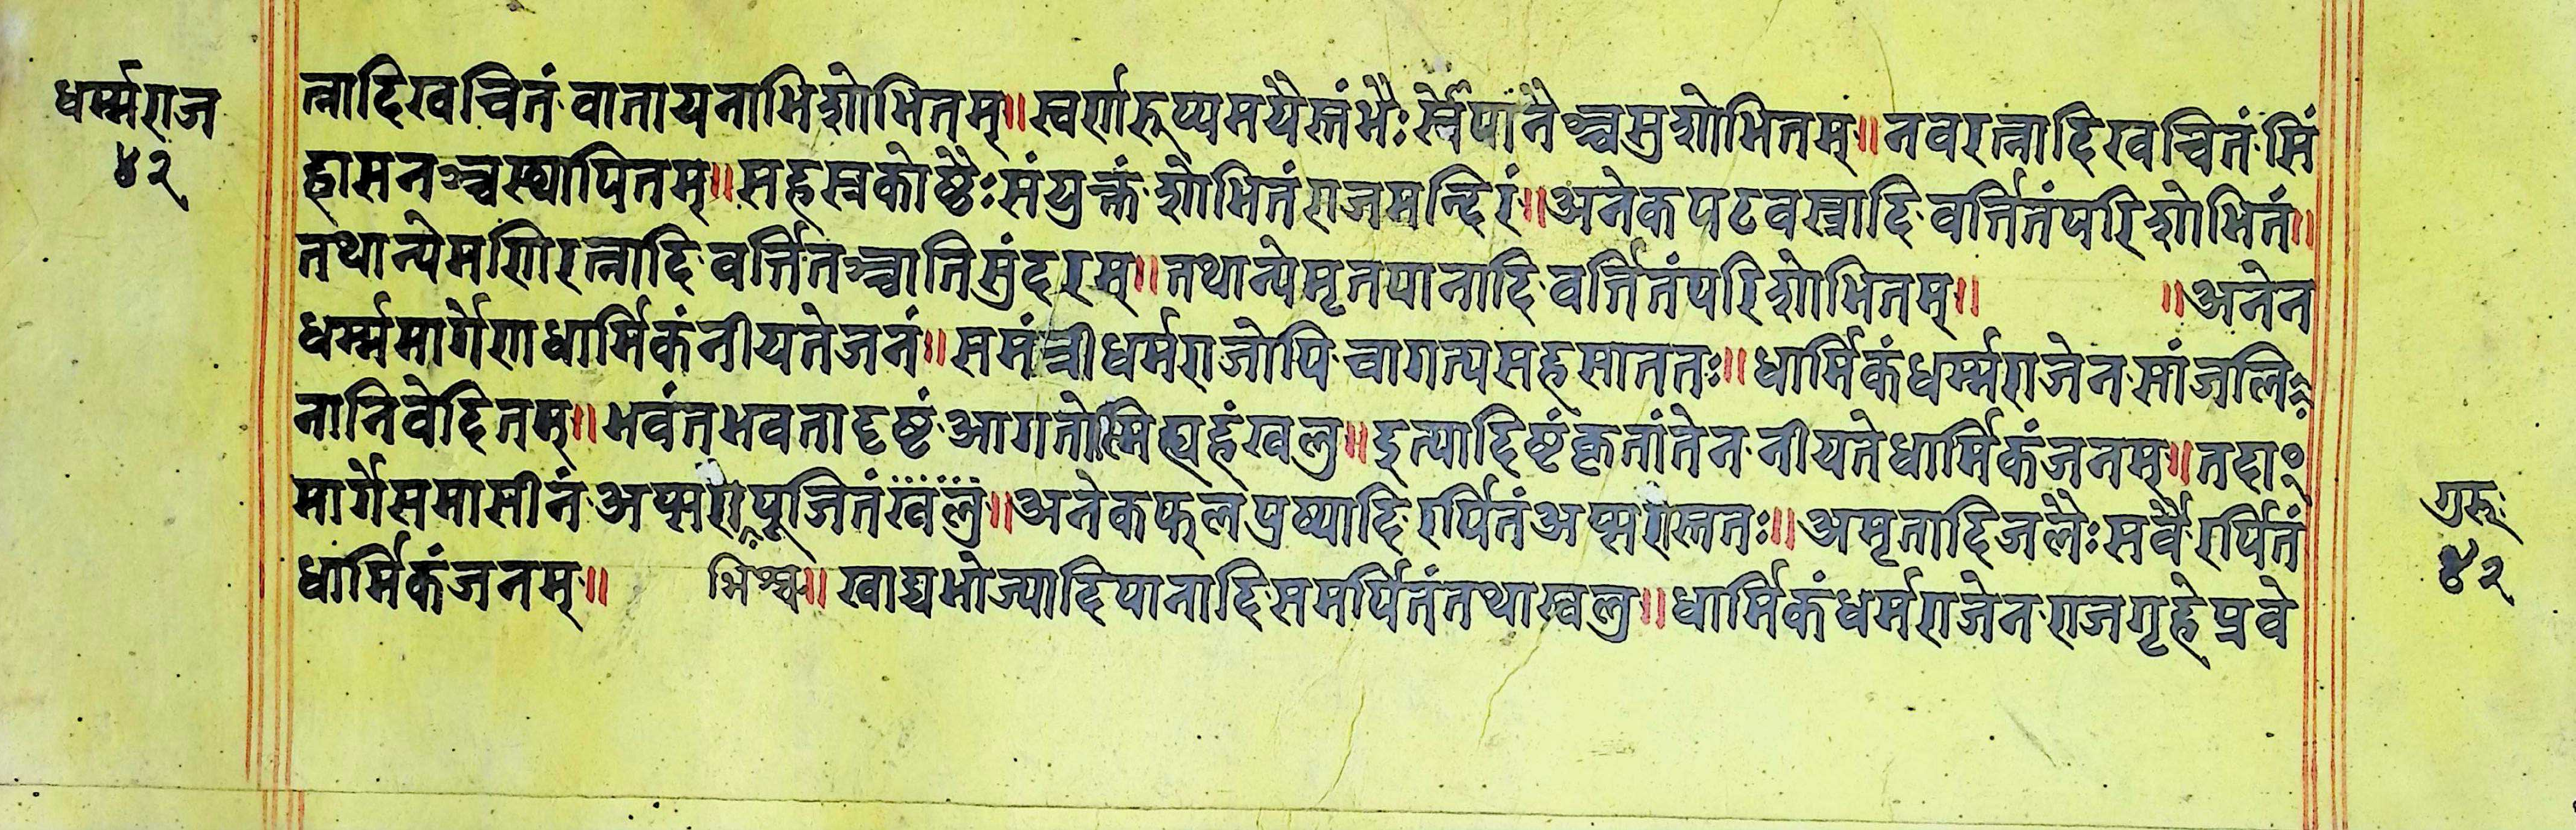 धर्म्मराज
४२
त्नादिखचितं वातायनाभिशोभितम्॥ स्वर्णरूप्यमयैस्तंभैः स्सोपानैश्च सुशोभितम्॥ नवरत्नादिखचितं सिं
हासनञ्च स्थापितम्॥ सहस्रकोष्ठैः संयुक्तं शोभितं राजमन्दिरं॥ अनेकपटवस्त्रादि वर्त्तितं परिशोभितं॥
तथान्येमणिरत्नादि वर्त्तितञ्चातिसुंदरम्॥ तथान्येमृतपानादि वर्त्तितं परिशोभितम्॥ ॥ अनेन
धर्म्ममार्गेण धार्मिकं नीयते जनं॥ समंत्री धर्मराजोपि चागत्य सहसा ततः॥ धार्मिकं धर्म्मराजेन सांजलि
ना निवेदितम्॥ भवंत भवता दृष्टं आगतोस्मि ह्यहं खलु॥ इत्यादिष्टं कृतांतेन नीयते धार्मिकं जनम्॥ तदा
मार्गे समासीनं अप्सरो पूजितं खलु॥ अनेकफलपुष्पादि रर्पितं अप्सरोस्ततः॥ अमृतादिजलैः सर्वै रर्पितं
धार्मिकं जनम्॥ भिश्च॥ खाद्यभोज्यादिपानादि समर्पितं तथा खलु॥ धार्मिकं धर्मराजेन राजगृहे प्रवे
गुरुः
४२